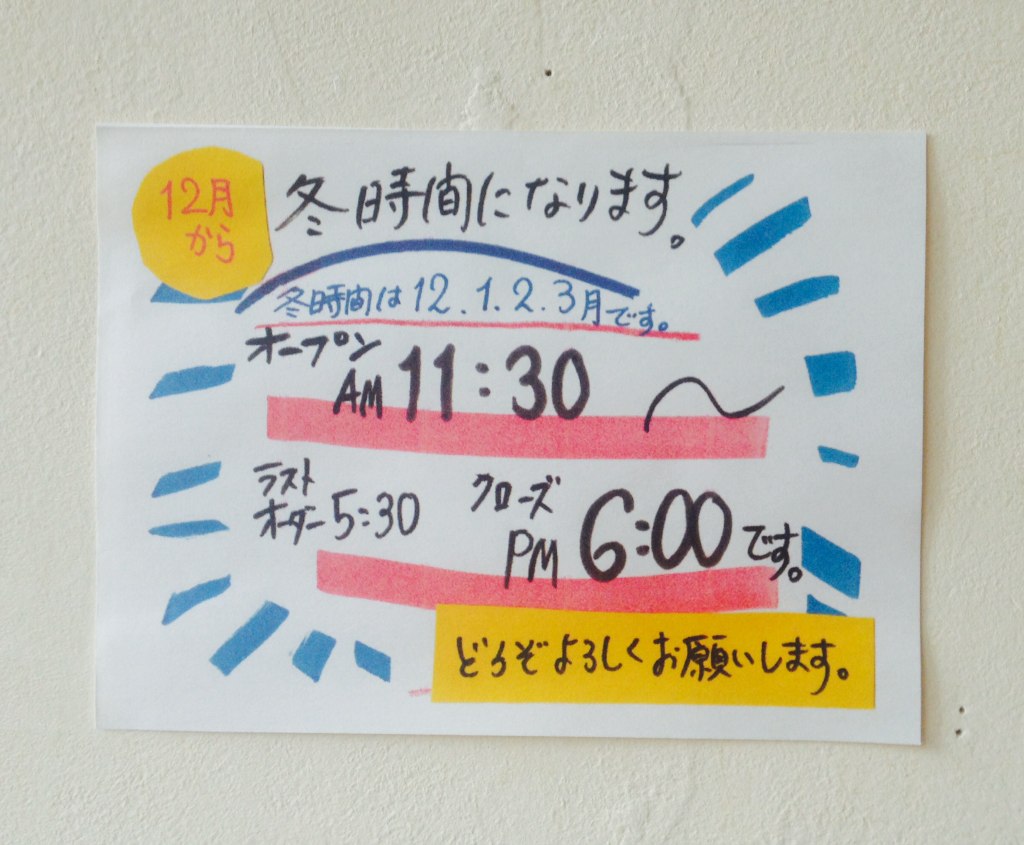 12月
から
冬時間になります。
冬時間は12.1.2.3月です。
オープン
AM 11:30 〜
ラスト
オーダー 5:30
クローズ
PM 6:00です。
どうぞよろしくお願いします。